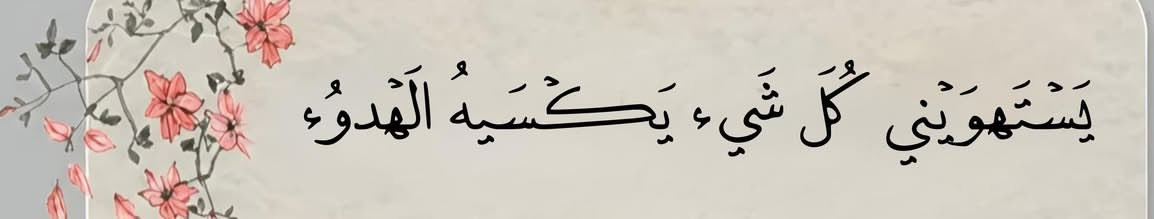 يَسْتَهوَيْني كُلَ شَيء يَكْسَيهُ الَهْدوُء